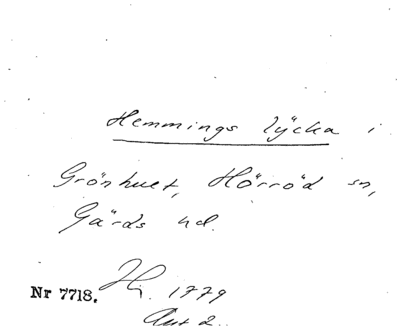 Hemmings lycka i
Grönhuet, Hörröd sn,
Gärds hd.
Nr 7718. Hy. 1779
Akt 2.